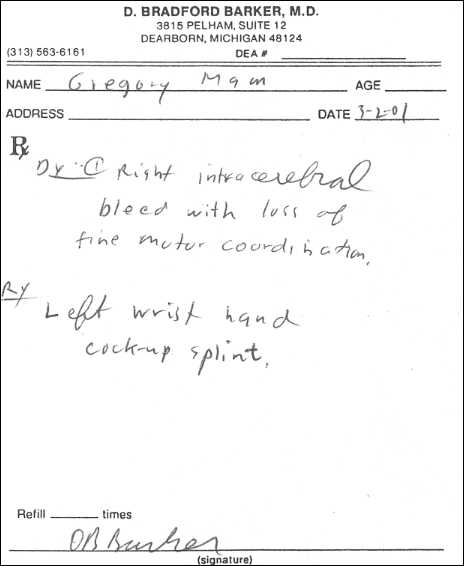 D. BRADFORD BARKER, M.D.
3815 PELHAM, SUITE 12
DEARBORN, MICHIGAN 48124
(313) 563-6161 DEA #
NAME Gregory Mam AGE
ADDRESS DATE 3-2-01
Rx
Dx: ① Right intracerebral
bleed with loss of
fine motor coordination.
Rx
Left wrist hand
cock-up splint.
Refill times
DB Barker
(signature)